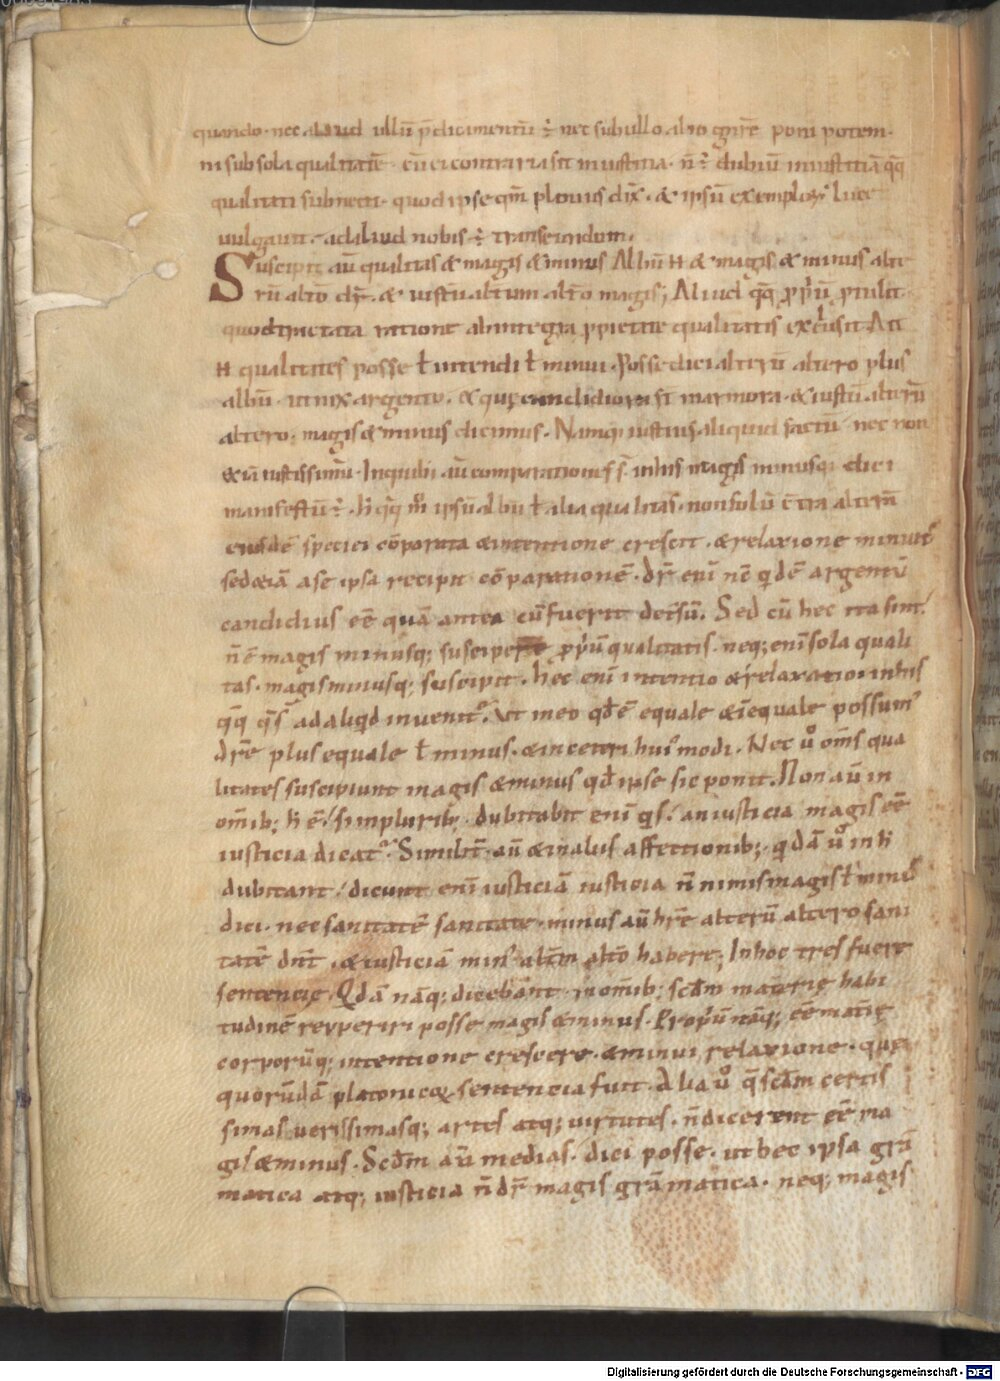 quando · nec aliud ullū p̄dicamentū ÷ nec sub ullo alio gn̄re poni potem·
ni sub sola qualitate · cui contraria sit iniusticia · n̄ ÷ dubiū iniusticiā q̄q̄
qualitati subnecti · quod ipse qm̄ planius dix̄ · & ipsū exemploꝝ luce
uulgauit · ad aliud nobis ÷ transeundum.
Suscipit aū qualitas & magis & minus Albū H & magis & minus alte
rū altō dr̄ · & iustū alterum altō magis; Aliud q̄q̄ ꝓp̄ū ꝓtulit
quod tractata ratione ab integra ꝓpietate qualitatis exclusit Ait
H qualitates posse ł intendi ł minui · Posse dici alterū altero plus
albū · ut nix argento · & quę candidiora st̄ marmora · & iustū alterū
altero · magis & minus dicimus · Namq; iustius aliquid factū nec non
& iā iustissimū · In quibꝫ aū comparationes s̄ in his magis minusq; dici
manifestū ÷ · h̄ q̄q̄ m̄ ipsū albū ł alia qualitas · non solū c̄tra alterā
eiusdē speciei cōparata & intentione crescit · & relaxione minuit᷒
sed & iā a se ipsa recipit cōparationē · dr̄ enī nē q̇dē argentū
candidius eē quā antea cū fuerit detersū. Sed cū hec ita sint
n̄ ē magis minusq; suscipere ꝓp̄ū qualitatis · neq; enī sola quali
tas · magis minusq; suscipit · hec enī intentio & relaxatio in his
q̄q̄ q̄ s̄ ad aliq̇d inuenit᷒. Ut in eo qd̄ ē equale & īequale possum᷒
dr̄e plus equale ł minus · & in ceteri hui᷒modi · Nec ů om̄s qua
litates suscipiunt magis & minus qd̄ ipse sic ponit. Non aū in
om̄ib; h̄ ē / si in pluribꝫ · dubitabit enī q̇s / an iusticia magis eē
iusticia dicat᷒. Similit̄ aū & in alus affectionib; · q̇dā ů in h̄
dubitant / dicunt enī iusticiā iusticia n̄ nimis magis ł min᷒
dici · nec sanitatē sanitate · minus aū hr̄e alterū altero sani
tatē dn̄t · & iusticiā min᷒ alt̄m altō habere; In hoc tres fuere
sentencię · Q̇dā nāq; dicebant · in om̄ib; scd̄m materię habi
tudinē repperiri posse magis & minus · Propriū nāq; eē matię
corporūq; intentione crescere · & minui relaxione · quę
quorūdā platonicoꝝ sentencia fuit · Alia ů q̄ scd̄m certis
simas uerissimasq; artes atq; uirtutes · n̄ dicerent eē ma
gis & minus · Scd̄m aū medias · dici posse · ut hec ipsa grā
matica atq; iusticia n̄ dr̄ magis grāmatica · neq; magis
Digitalisierung gefördert durch die Deutsche Forschungsgemeinschaft - DFG